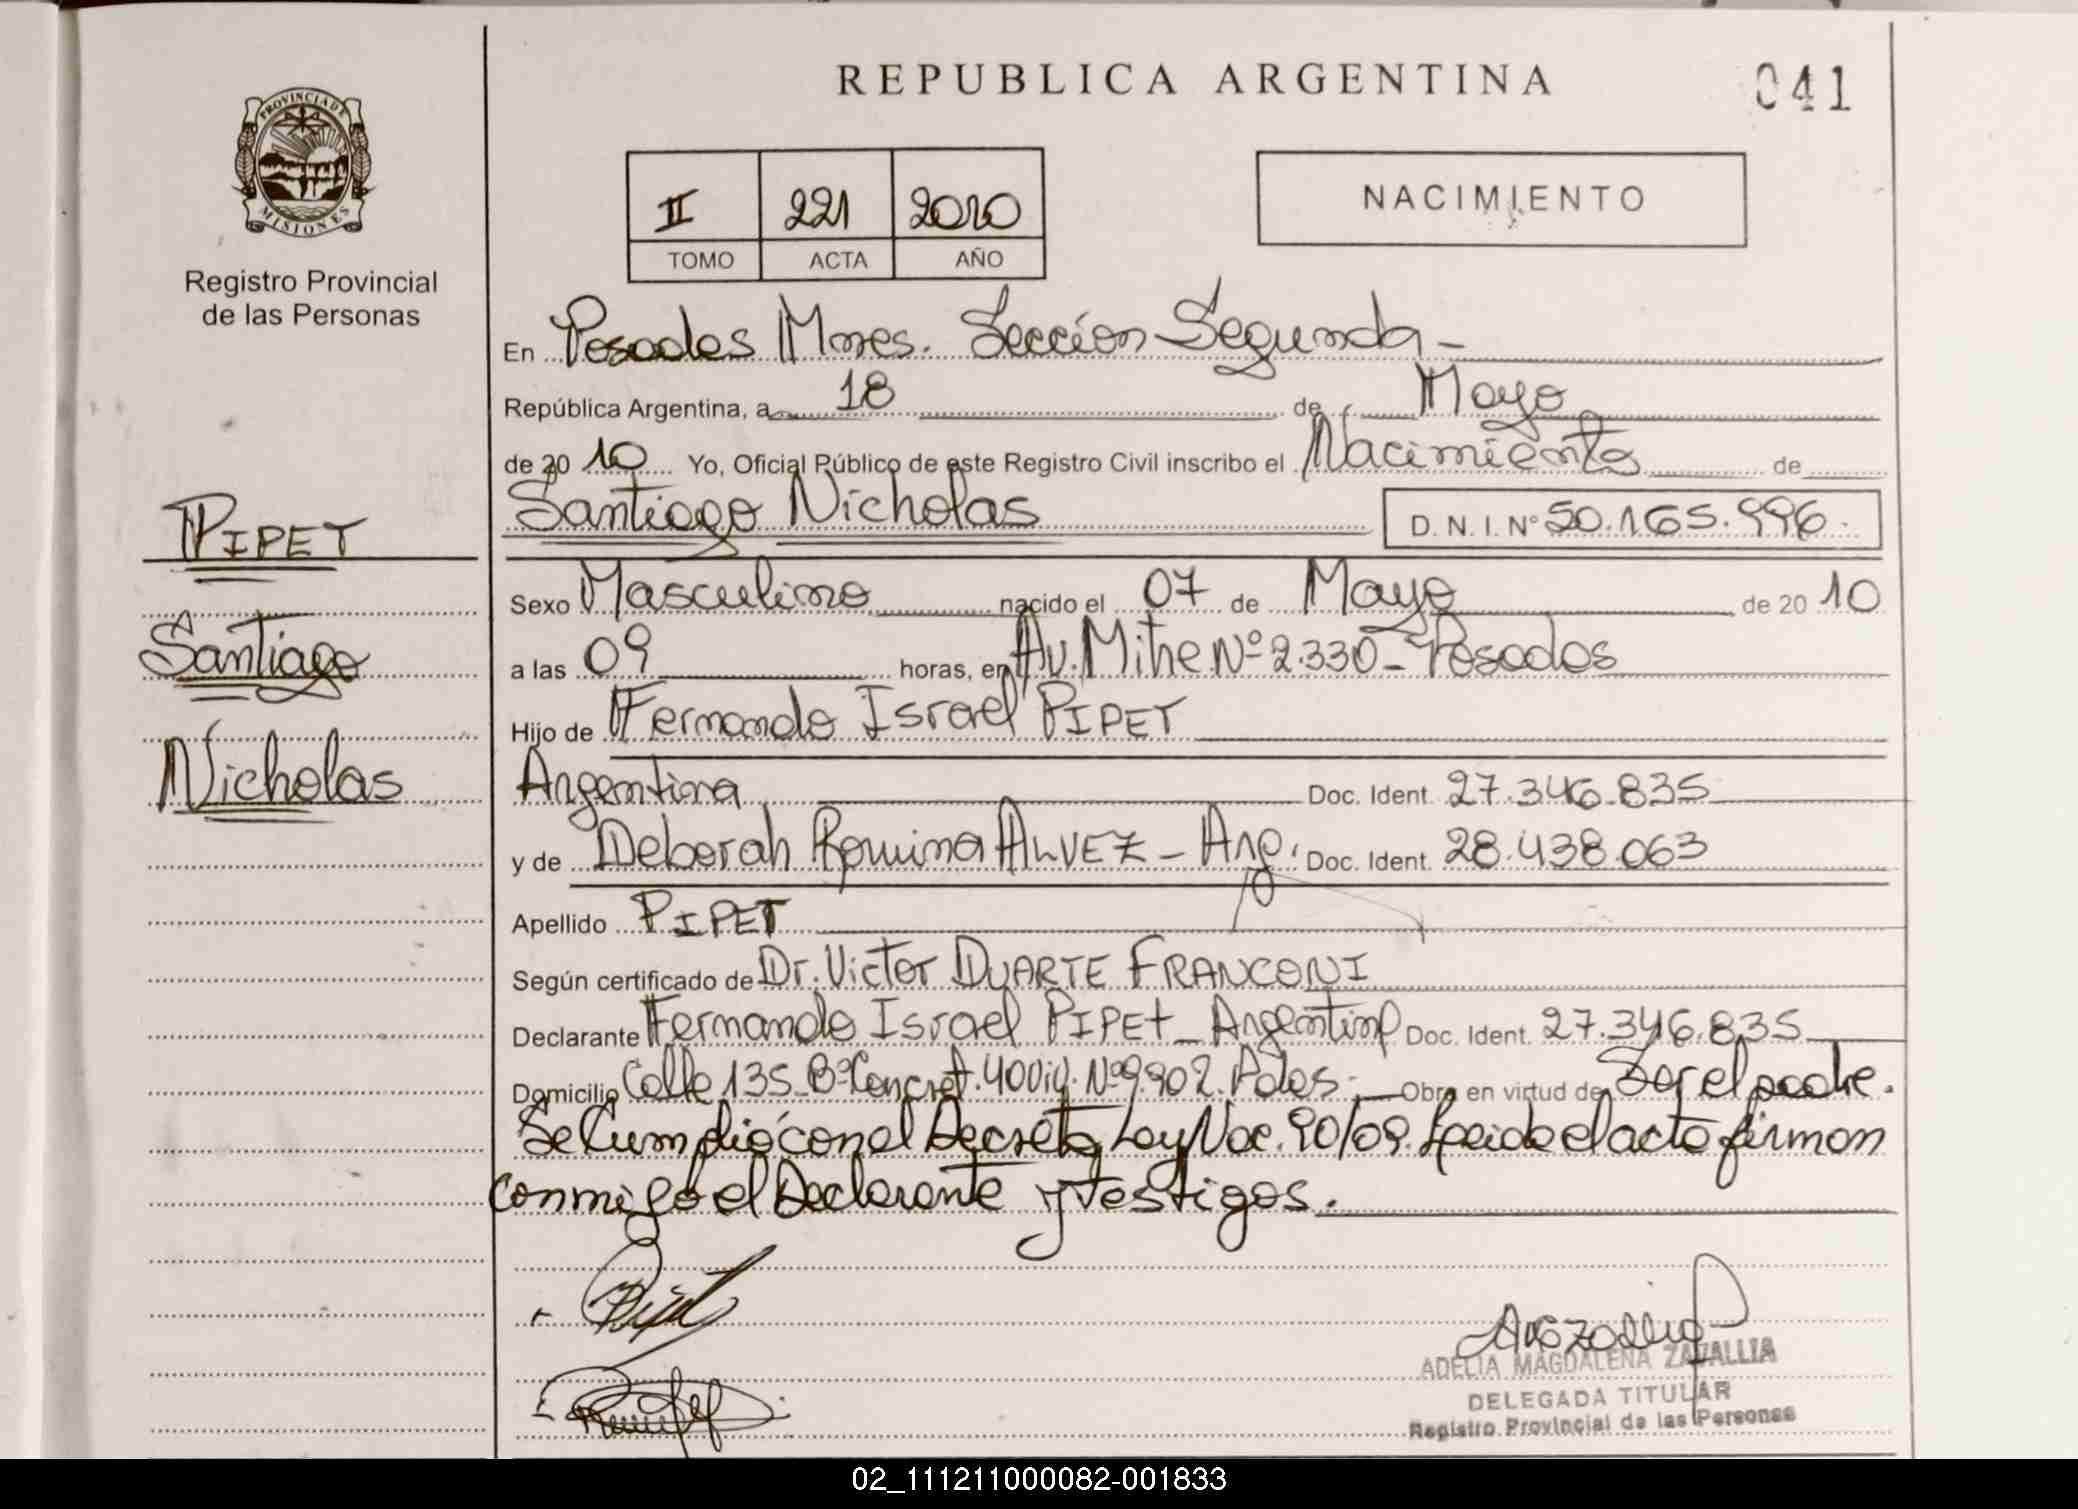 REPUBLICA ARGENTINA
041
PROVINCIA DE
MISIONES
Registro Provincial
de las Personas
II 221 2010
TOMO ACTA AÑO
NACIMIENTO
En Posadas Mnes. Sección Segunda -
República Argentina, a 18 de Mayo
de 20 10 Yo, Oficial Público de este Registro Civil inscribo el Nacimiento de
Santiago Nicholas D. N. I. Nº 50.165.996.
PIPET
Santiago
Nicholas
Sexo Masculino nacido el 07 de Mayo de 20 10
a las 09 horas, en Av. Mitre Nº 2.330 - Posadas
Hijo de Fernando Israel PIPET
Argentina Doc. Ident. 27.346.835
y de Deborah Romina ALVEZ - Arg. Doc. Ident. 28.438.063
Apellido PIPET
Según certificado de Dr. Victor DUARTE FRANCONI
Declarante Fernando Israel PIPET - Argentino Doc. Ident. 27.346.835
Domicilio Calle 135 Bº Concret. 400 Viv. Nº 9.902. Pdas. Obra en virtud de Ser el padre.
Se Cumplió con el Decreto Ley Nac. 90/09. Leida el acto firman
conmigo el Declarante y testigos.
ADELIA MAGDALENA ZAVALLIA
DELEGADA TITULAR
Registro Provincial de las Personas
02_111211000082-001833